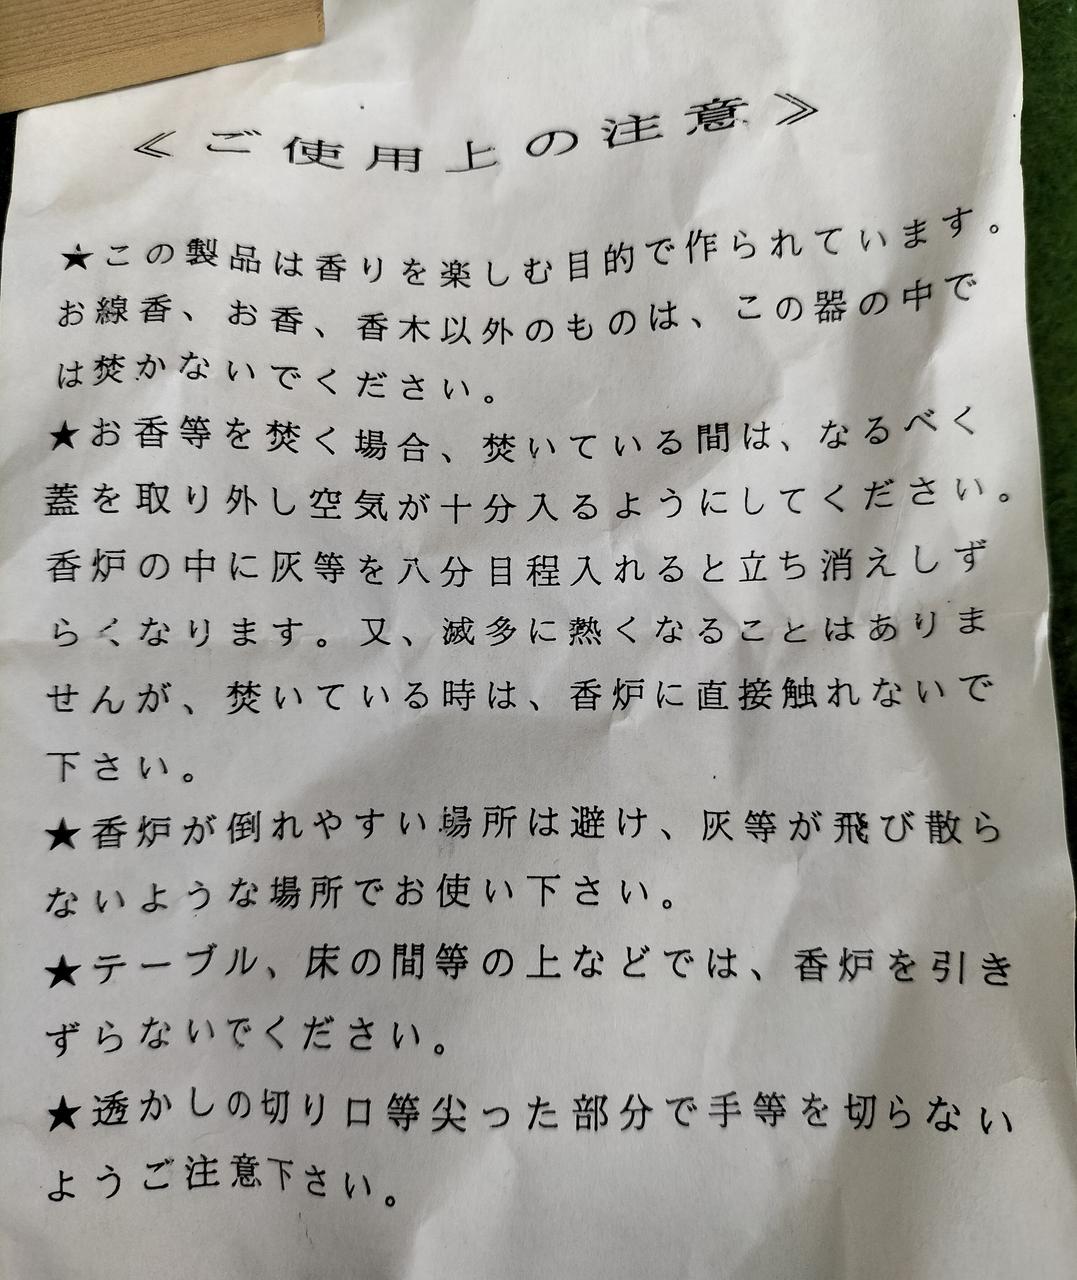 ≪ご使用上の注意≫
★この製品は香りを楽しむ目的で作られています。
お線香、お香、香木以外のものは、この器の中で
は焚かないでください。
★お香等を焚く場合、焚いている間は、なるべく
蓋を取り外し空気が十分入るようにしてください。
香炉の中に灰等を八分目程入れると立ち消えしず
らくなります。又、滅多に熱くなることはありま
せんが、焚いている時は、香炉に直接触れないで
下さい。
★香炉が倒れやすい場所は避け、灰等が飛び散ら
ないような場所でお使い下さい。
★テーブル、床の間等の上などでは、香炉を引き
ずらないでください。
★透かしの切り口等尖った部分で手等を切らない
ようご注意下さい。